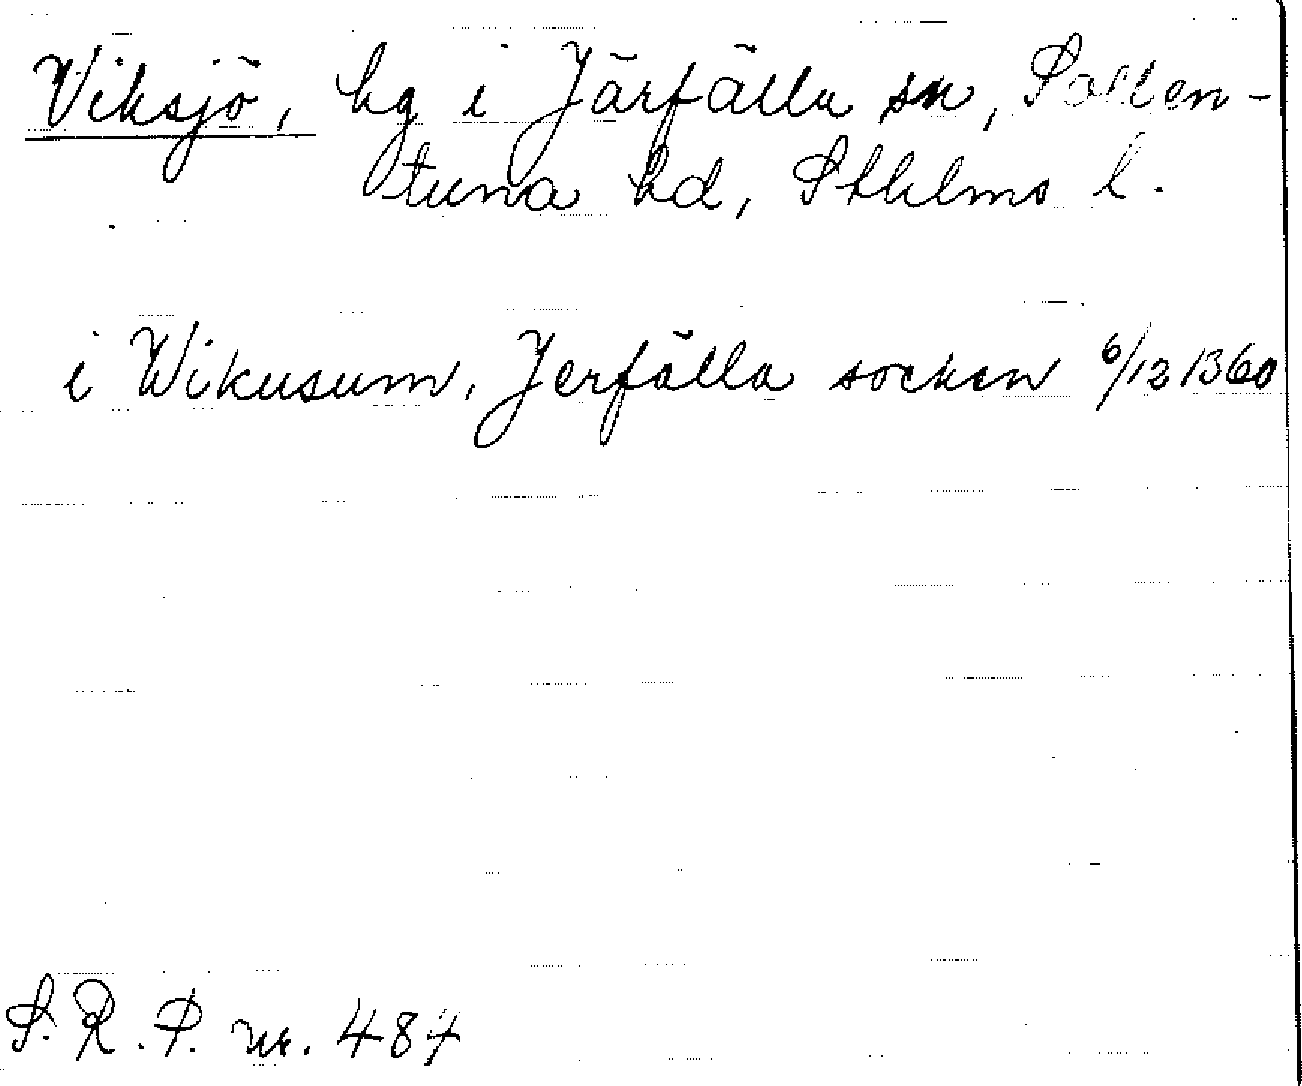 Viksjö, hg i Järfälla sn, Sollen-
tuna hd, Sthlms l.
i Wikusum, Jerfälla socken 6/12 1360
S.R.P. nr. 487